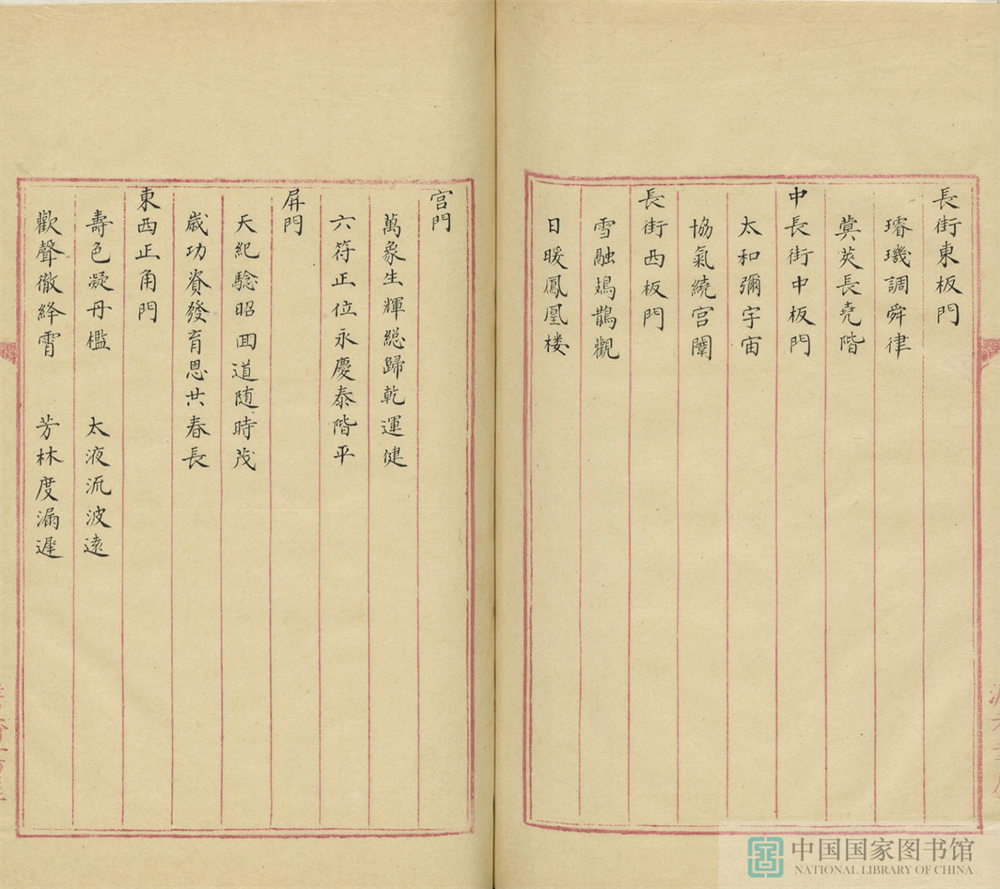 長街東板門
璿璣調舜律
蓂莢長堯階
中長街中板門
太和彌宇宙
協氣繞宮闈
長街西板門
雪融鳷鵲觀
日暖鳳凰楼
宮門
萬象生輝緫歸乾運健
六符正位永慶泰階平
屏門
天紀騐昭回道随時茂
歳功資發育恩共春長
東西正角門
壽色凝丹檻 太液流波遠
歡聲徹絳霄 芳林度漏遲
中国国家图书馆
NATIONAL LIBRARY OF CHINA